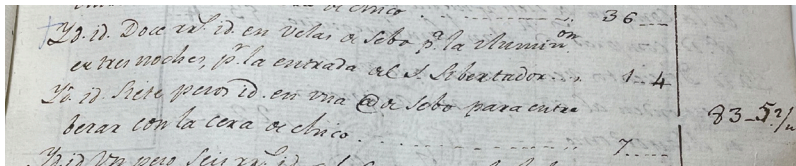 de chico . . . . . 36 __
Yd. id. Doce rr.s id. en velas de sebo, p.a la ilumin.on
en tres noches, p.r la entrada del S. Libertador . . . 1 __ 4
Yd. id. Siete pesos id. en una @ de sebo para entre
berar con la cera de chico . . . . . 7 __
83 _ 5 1/2
Yd. id. Un peso seis rr.s id.